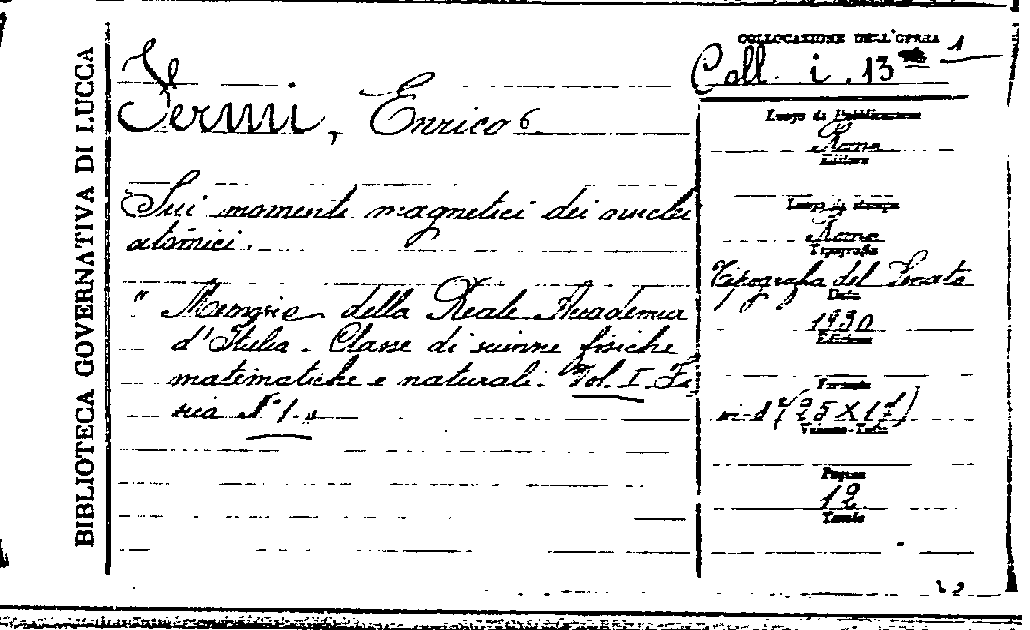 BIBLIOTECA GOVERNATIVA DI LUCCA
Fermi, Enrico 6.
Sui momenti magnetici dei nuclei
atomici.
" Memorie della Reale Accademia
d'Italia. Classe di scienze fisiche
matematiche e naturali. Vol. I. Fi
sica N. 1. "
COLLOCAZIONE DELL'OPERA
Coll. i. 13 1
Luogo di Pubblicazione
Roma
Editore
Luogo di stampa
Roma
Tipografia
Tipografia del Senato
Data
1930
Edizione
Formato
in 4° (25 X 17)
Pagine
12
Tavole